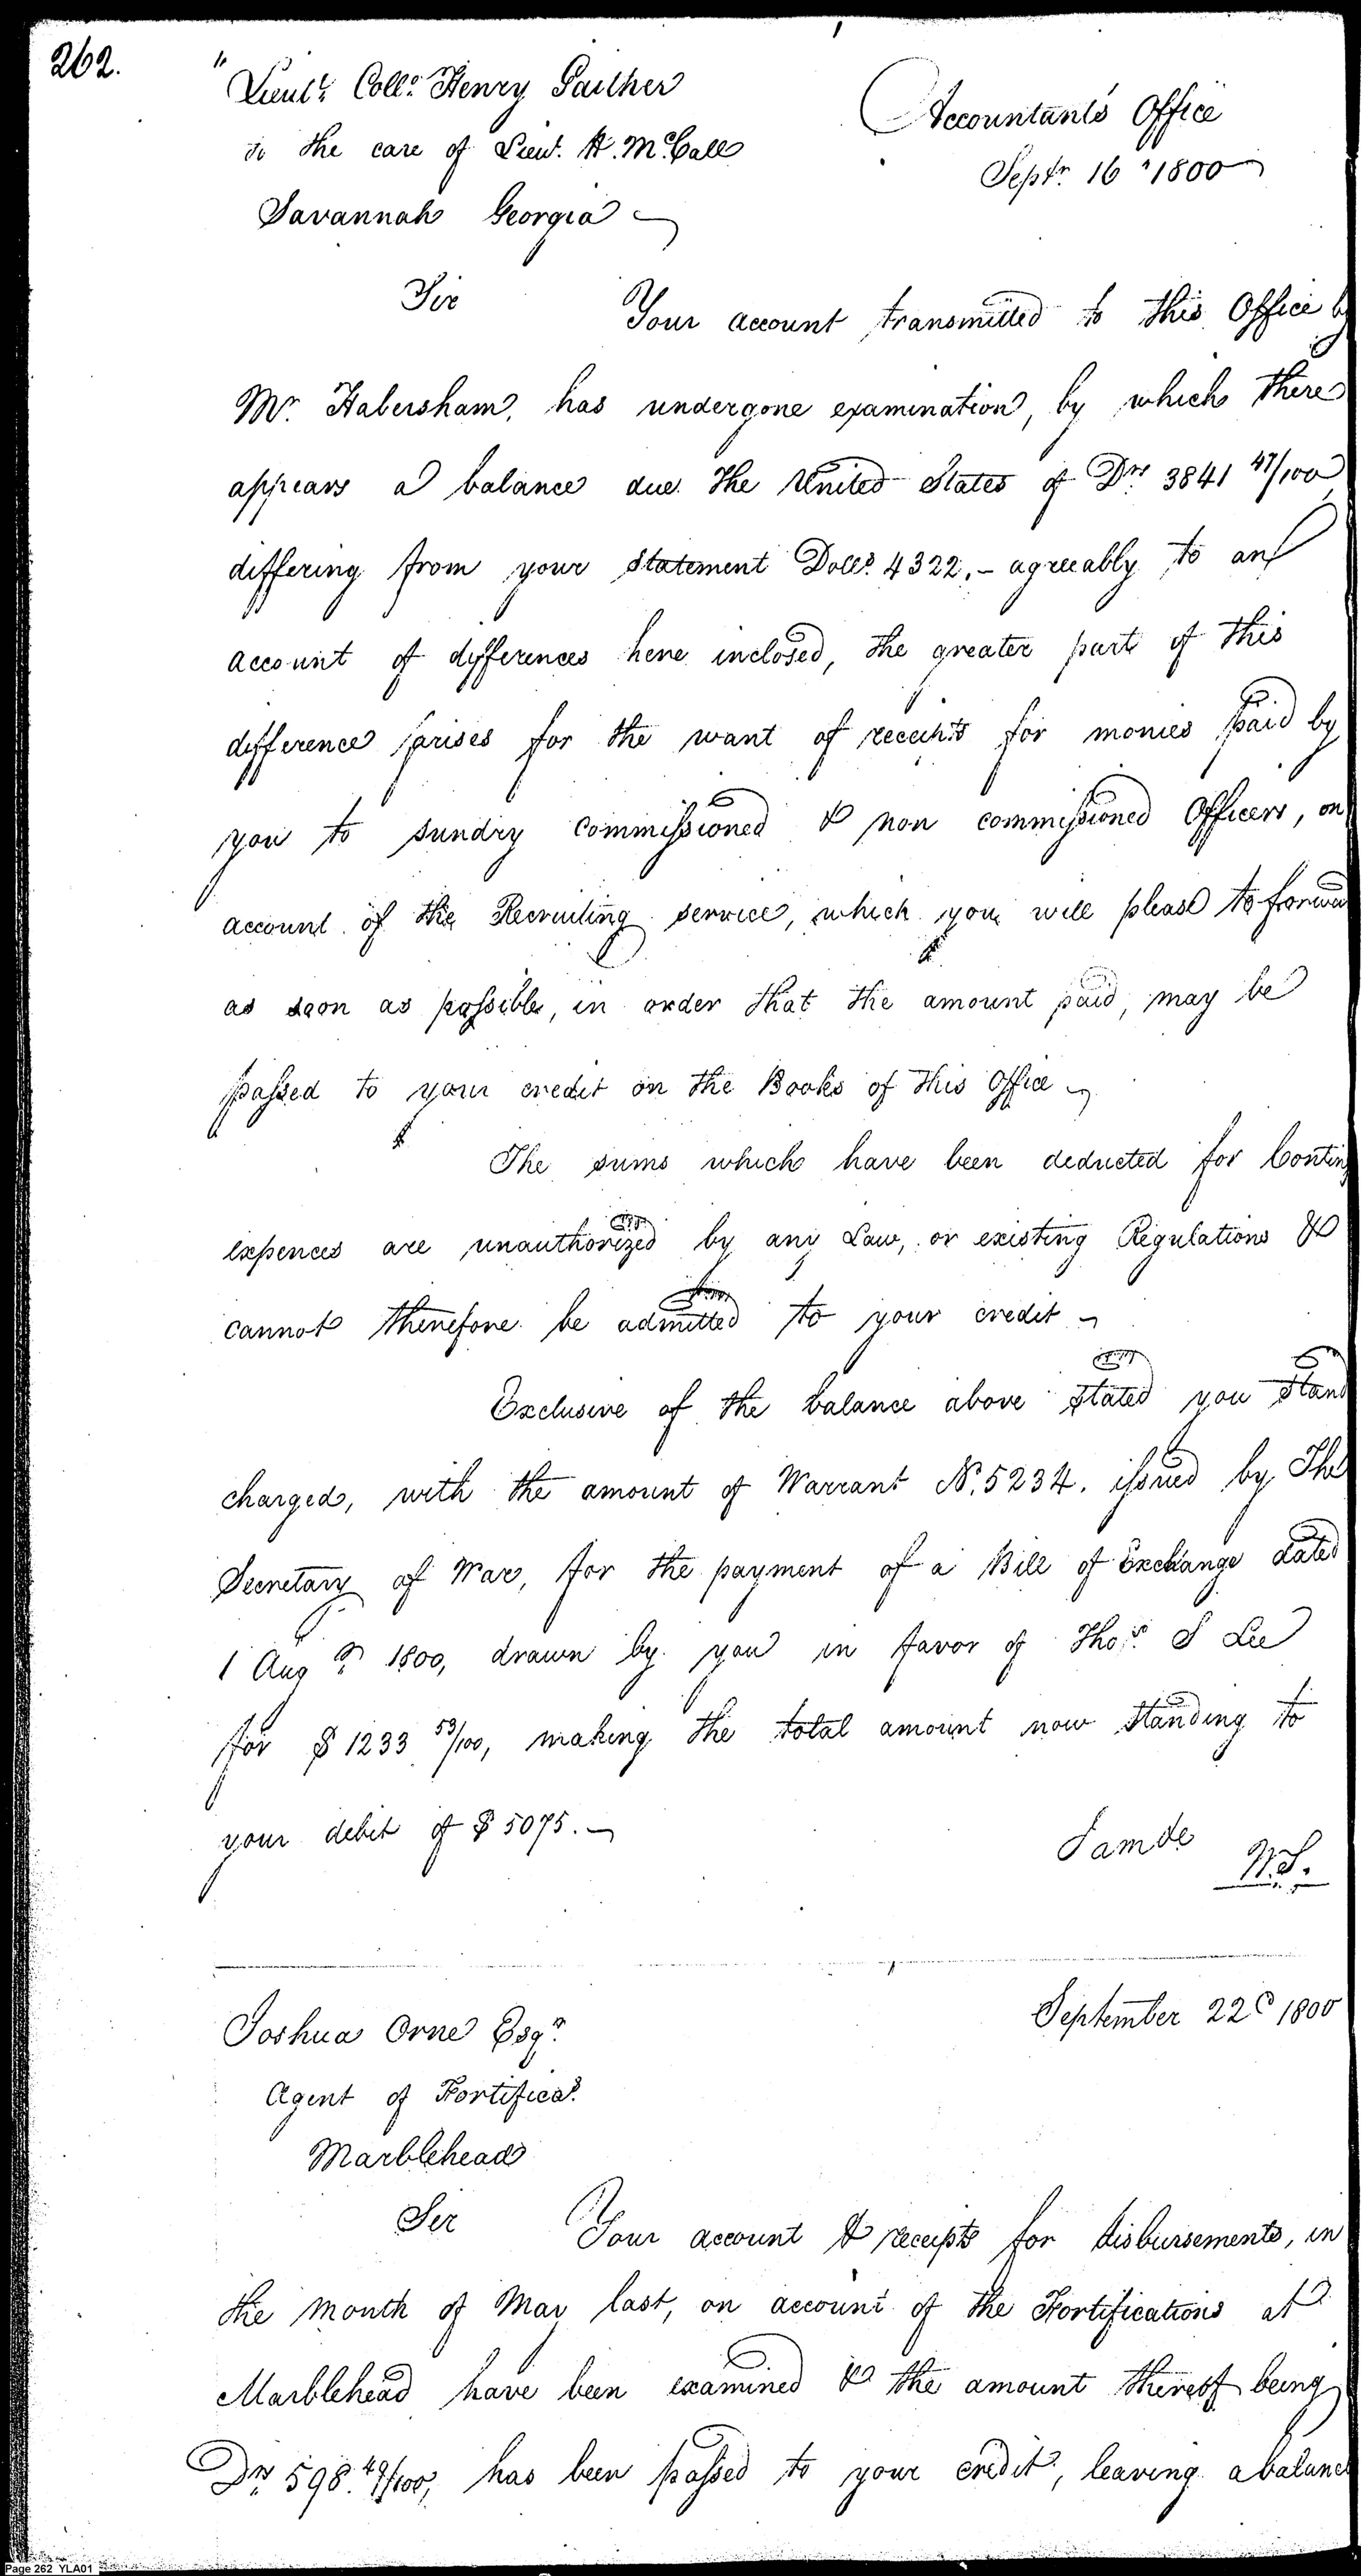 262.
" Lieut.t Coll.o Henry Gaither
to the care of Lieut. H. McCall
Savannah Georgia
Accountants Office
Septr. 16 " 1800
Sir Your account transmitted to this Office by
Mr. Habersham, has undergone examination, by which there
appears a balance due the United States of Drs 3841 47/100
differing from your statement Dolls. 4322,- agreeably to an
account of differences here inclosed, the greater part of this
difference arises for the want of receipts for monies paid by
you to sundry commissioned & non commissioned Officers, on
account of the Recruiting service, which you will please to forwa
as soon as possible, in order that the amount paid, may be
passed to your credit on the Books of this Office
The sums which have been deducted for Conting
expences are unauthorized by any Law, or existing Regulations &
cannot therefore be admitted to your credit
Exclusive of the balance above stated you stand
charged, with the amount of Warrant No. 5234. issued by The
Secretary of War, for the payment of a Bill of Exchange dated
1 Aug 1800, drawn by you in favor of Thos. S Lee
for $ 1233 53/100, making the total amount now standing to
your debit of $ 5075.-
Sam de
W.S.
September 22d 1800
Joshua Orne Esqr.
Agent of Fortificas.
Marblehead
Sir Your account & receipts for disbursements, in
the month of May last, on account of the Fortifications at
Marblehead have been examined & the amount thereof being
Drs 598. 49/100, has been passed to your credit, leaving a balance
Page 262 YLA01